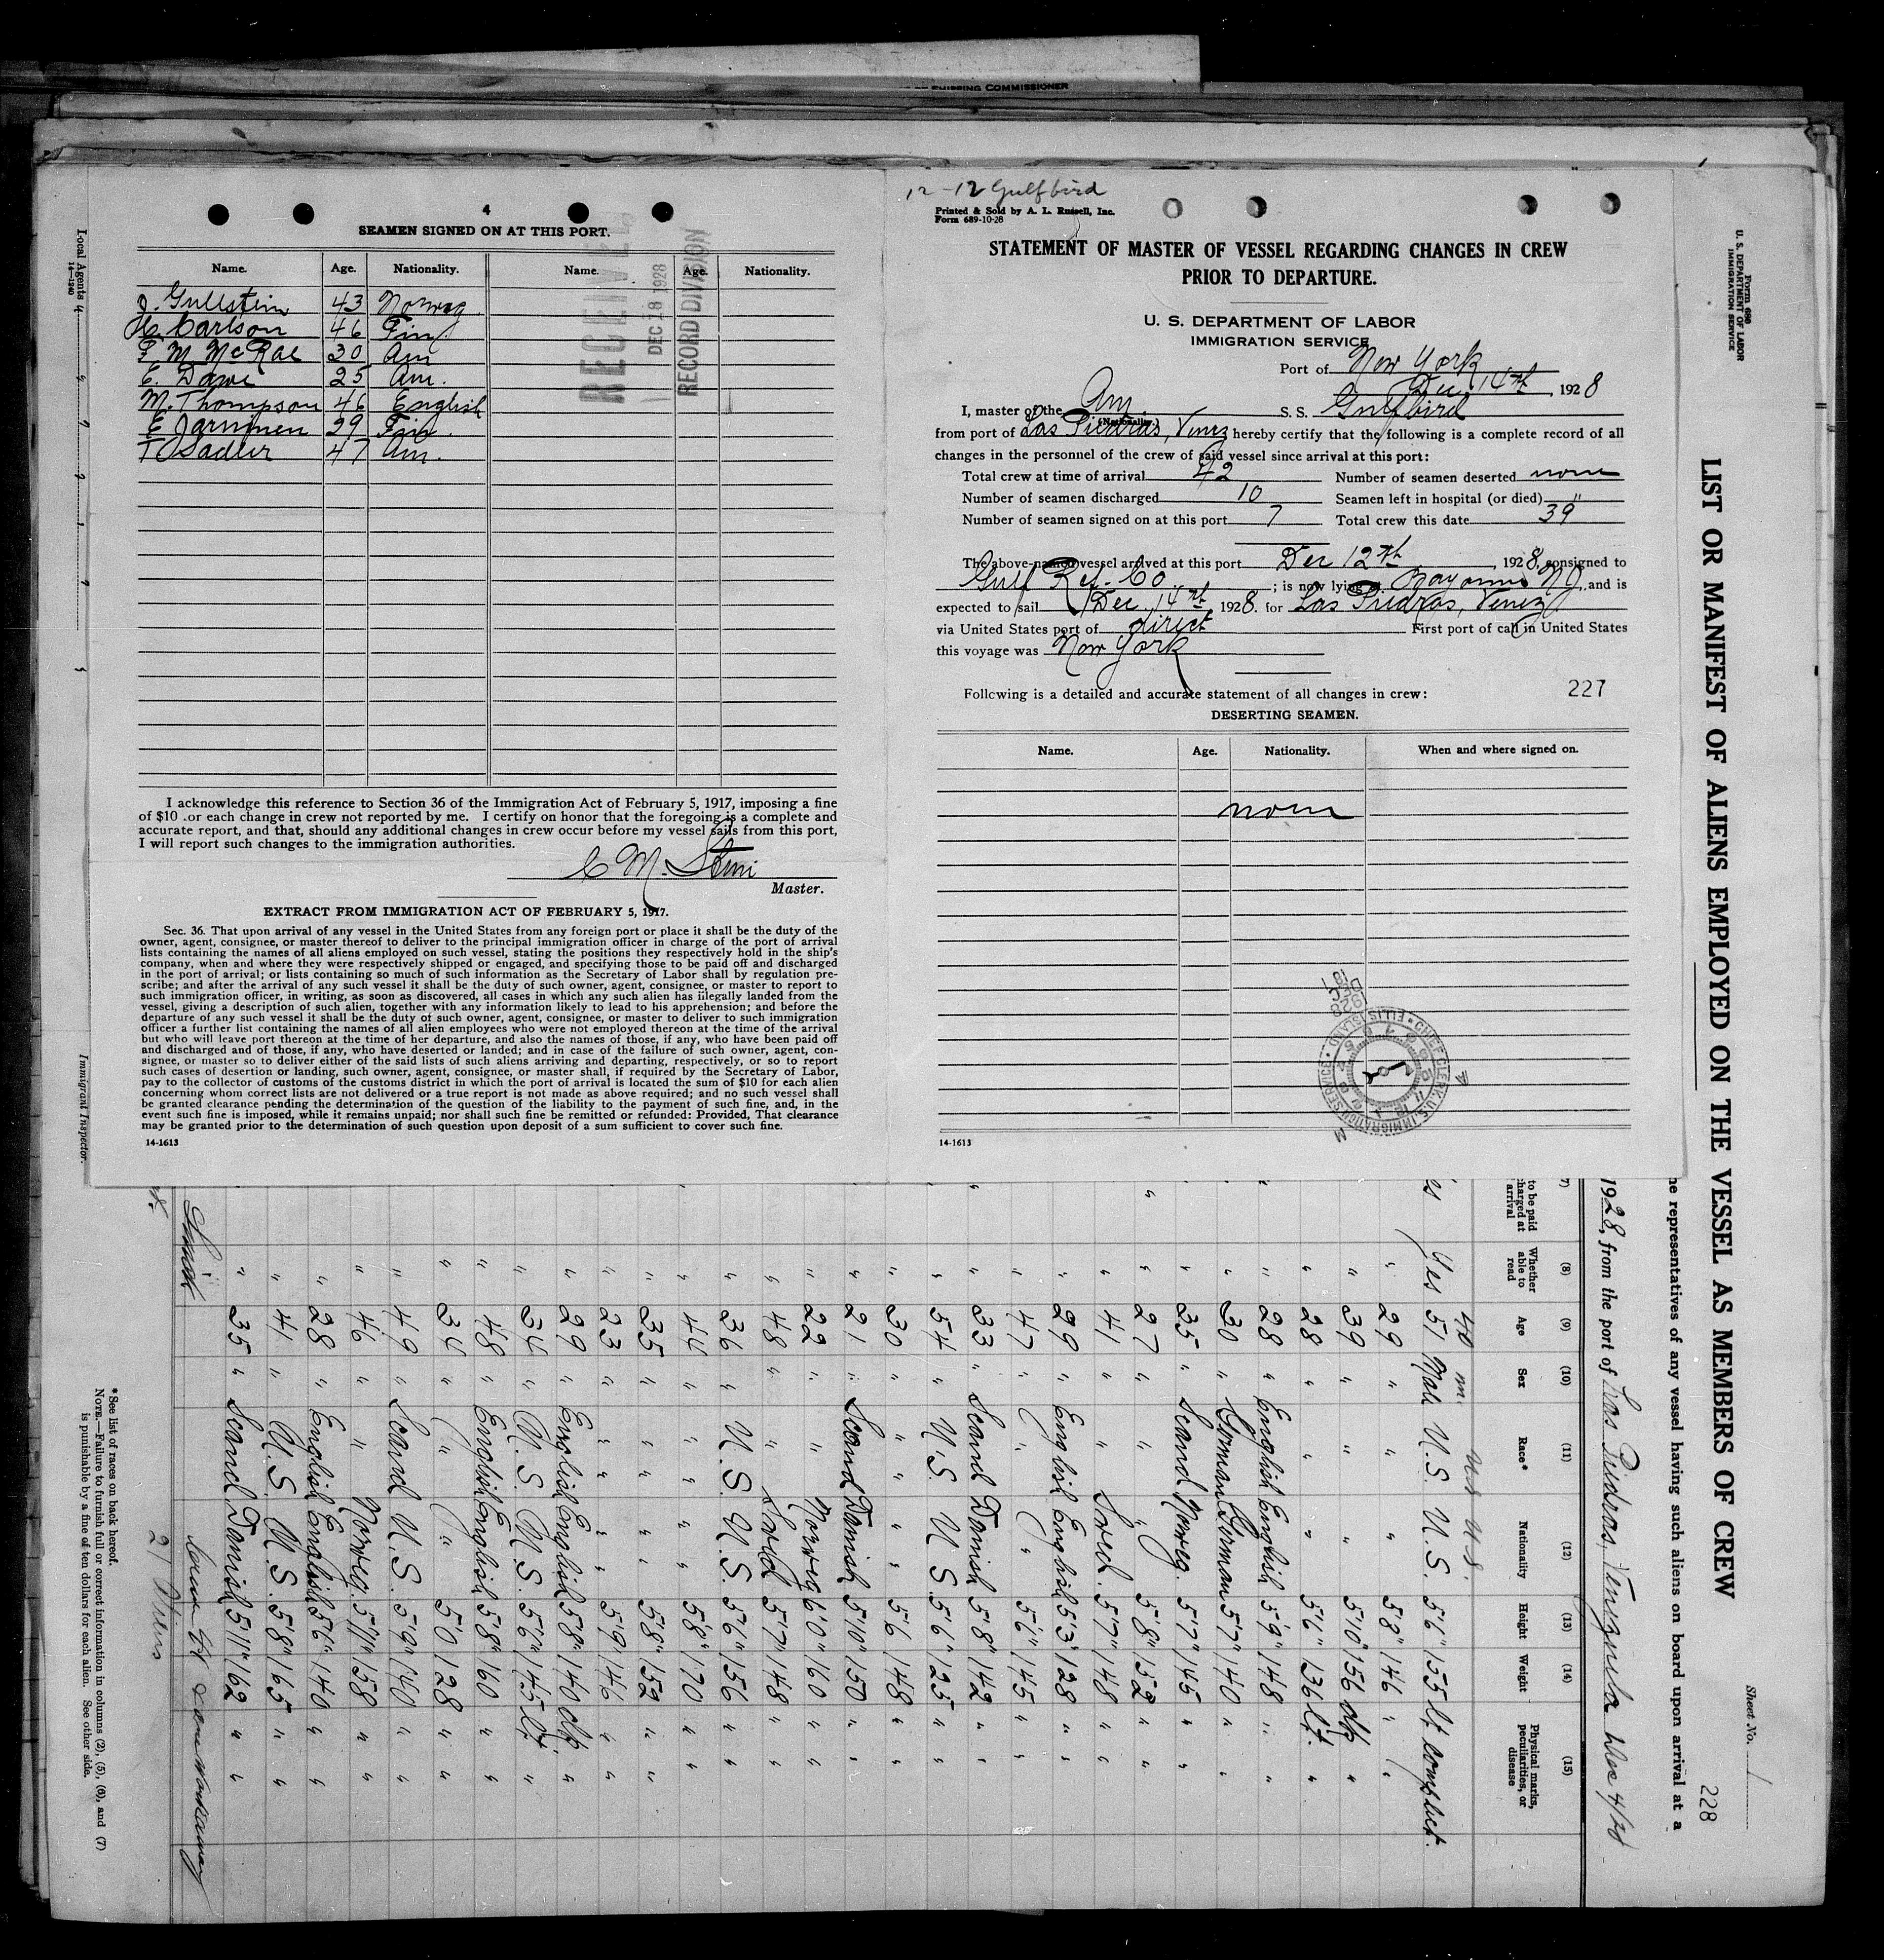 OF SHIPPING COMMISSIONER
4
SEAMEN SIGNED ON AT THIS PORT.
Name. Age. Nationality. Name. Age. Nationality.
J. Gullstein 43 Norweg
H. Carlson 46 Fin.
F. M. McRae 30 Am
E. Dawe 25 Am.
M. Thompson 46 English
E Jarninen 29 Fin.
T O Sadler 47 Am.
RECEIVED
DEC 18 1928
RECORD DIVISION
I acknowledge this reference to Section 36 of the Immigration Act of February 5, 1917, imposing a fine
of $10 .or each change in crew not reported by me. I certify on honor that the foregoing is a complete and
accurate report, and that, should any additional changes in crew occur before my vessel sails from this port,
I will report such changes to the immigration authorities.
C M.
Master.
EXTRACT FROM IMMIGRATION ACT OF FEBRUARY 5, 1917.
Sec. 36. That upon arrival of any vessel in the United States from any foreign port or place it shall be the duty of the
owner, agent, consignee, or master thereof to deliver to the principal immigration officer in charge of the port of arrival
lists containing the names of all aliens employed on such vessel, stating the positions they respectively hold in the ship's
company, when and where they were respectively shipped or engaged, and specifying those to be paid off and discharged
in the port of arrival; or lists containing so much of such information as the Secretary of Labor shall by regulation pre-
scribe; and after the arrival of any such vessel it shall be the duty of such owner, agent, consignee, or master to report to
such immigration officer, in writing, as soon as discovered, all cases in which any such alien has illegally landed from the
vessel, giving a description of such alien, together with any information likely to lead to his apprehension; and before the
departure of any such vessel it shall be the duty of such owner, agent, consignee, or master to deliver to such immigration
officer a further list containing the names of all alien employees who were not employed thereon at the time of the arrival
but who will leave port thereon at the time of her departure, and also the names of those, if any, who have been paid off
and discharged and of those, if any, who have deserted or landed; and in case of the failure of such owner, agent, con-
signee, or master so to deliver either of the said lists of such aliens arriving and departing, respectively, or so to report
such cases of desertion or landing, such owner, agent, consignee, or master shall, if required by the Secretary of Labor,
pay to the collector of customs of the customs district in which the port of arrival is located the sum of $10 for each alien
concerning whom correct lists are not delivered or a true report is not made as above required; and no such vessel shall
be granted clearance pending the determination of the question of the liability to the payment of such fine, and, in the
event such fine is imposed, while it remains unpaid; nor shall such fine be remitted or refunded: Provided, That clearance
may be granted prior to the determination of such question upon deposit of a sum sufficient to cover such fine.
14-1613
12-12 Gulfbird
Printed & Sold by A. L. Russell, Inc.
Form 689-10-28
STATEMENT OF MASTER OF VESSEL REGARDING CHANGES IN CREW
PRIOR TO DEPARTURE.
U. S. DEPARTMENT OF LABOR
IMMIGRATION SERVICE
Port of New York
Dec 14th, 1928
I, master of the Am (Nationality.) S. S. Gulfbird
from port of Las Piedras, Venez hereby certify that the following is a complete record of all
changes in the personnel of the crew of said vessel since arrival at this port:
Total crew at time of arrival 42 Number of seamen deserted none
Number of seamen discharged 10 Seamen left in hospital (or died) "
Number of seamen signed on at this port 7 Total crew this date 39
The above-named vessel arrived at this port Dec 12th, 1928, consigned to
Gulf Ref. Co; is now lying at Bayonne NJ, and is
expected to sail Dec. 14th, 1928. for Las Piedras, Venez
via United States port of direct First port of call in United States
this voyage was New York
Following is a detailed and accurate statement of all changes in crew: 227
DESERTING SEAMEN.
Name. Age. Nationality. When and where signed on.
none
CHIEF CLERK, U. S. IMMIGRATION SERVICE • ELLIS ISLAND
14-1613
Form 690
U. S. DEPARTMENT OF LABOR
IMMIGRATION SERVICE
LIST OR MANIFEST OF ALIENS EMPLOYED ON THE VESSEL AS MEMBERS OF CREW
Sheet No. 1
228
he representatives of any vessel having such aliens on board upon arrival at a
1928, from the port of Las Piedras, Venezuela Dec 4/28
(7) (8) (9) (10) (11) (12) (13) (14) (15)
to be paid
charged at
arrival
Whether
able to
read
Age
Sex
Race*
Nationality
Height
Weight
Physical marks,
peculiarities, or
disease
40 m. US US.
es Yes 51 Male U.S. U.S. 5'6" 155 lt complect.
" 29 " " " 5'8" 146 " "
" 39 " " " 5'10" 156 dk "
" 28 " " " 5'6" 136 lt. "
" 28 " English English 5'9" 148 " "
" 30 " German German 5'7" 140 " "
" 35 " Scand Norweg. 5'7" 145 " "
" 27 " " " 5'8" 152 " "
" 41 " " Swed. 5'7" 148 " "
" 29 " English English 5'3" 128 " "
" 47 " " " 5'6" 145 " "
" 33 " Scand Danish 5'8" 142 " "
" 54 " U.S. U.S. 5'6" 125 " "
" 30 " " " 5'6 148 " "
" 21 " Scand Danish 5'10" 150 " "
" 22 " " Norweg 6'0" 160 " "
" 48 " " 5'7" 148 " "
" 36 " U.S. U.S. 5'7" 156 " "
" 44 " " " 5'8" 170 " "
" 35 " " " 5'8" 152 " "
" 23 " " " 5'9 146 " "
" 29 " English English 5'8" 140 dk "
" 34 " U.S. U.S. 5'6" 145 lt. "
" 48 " English English 5'8" 160 " "
" 34 " " " 5'0 128 " "
" 49 " Scand U.S. 5'9" 140 " "
" 46 " " Norweg. 5'11" 158 " "
" 28 " English English 5'6" 140 " "
" 41 " U.S. U.S. 5'8" 165 " "
" 35 " Scand Danish 5'11" 162 " "
21 Aliens
*See list of races on back hereof.
NOTE.—Failure to furnish full or correct information in columns (2), (5), (6), and (7)
is punishable by a fine of ten dollars for each alien. See other side.
Local Agents
14-1240
Immigrant Inspector.